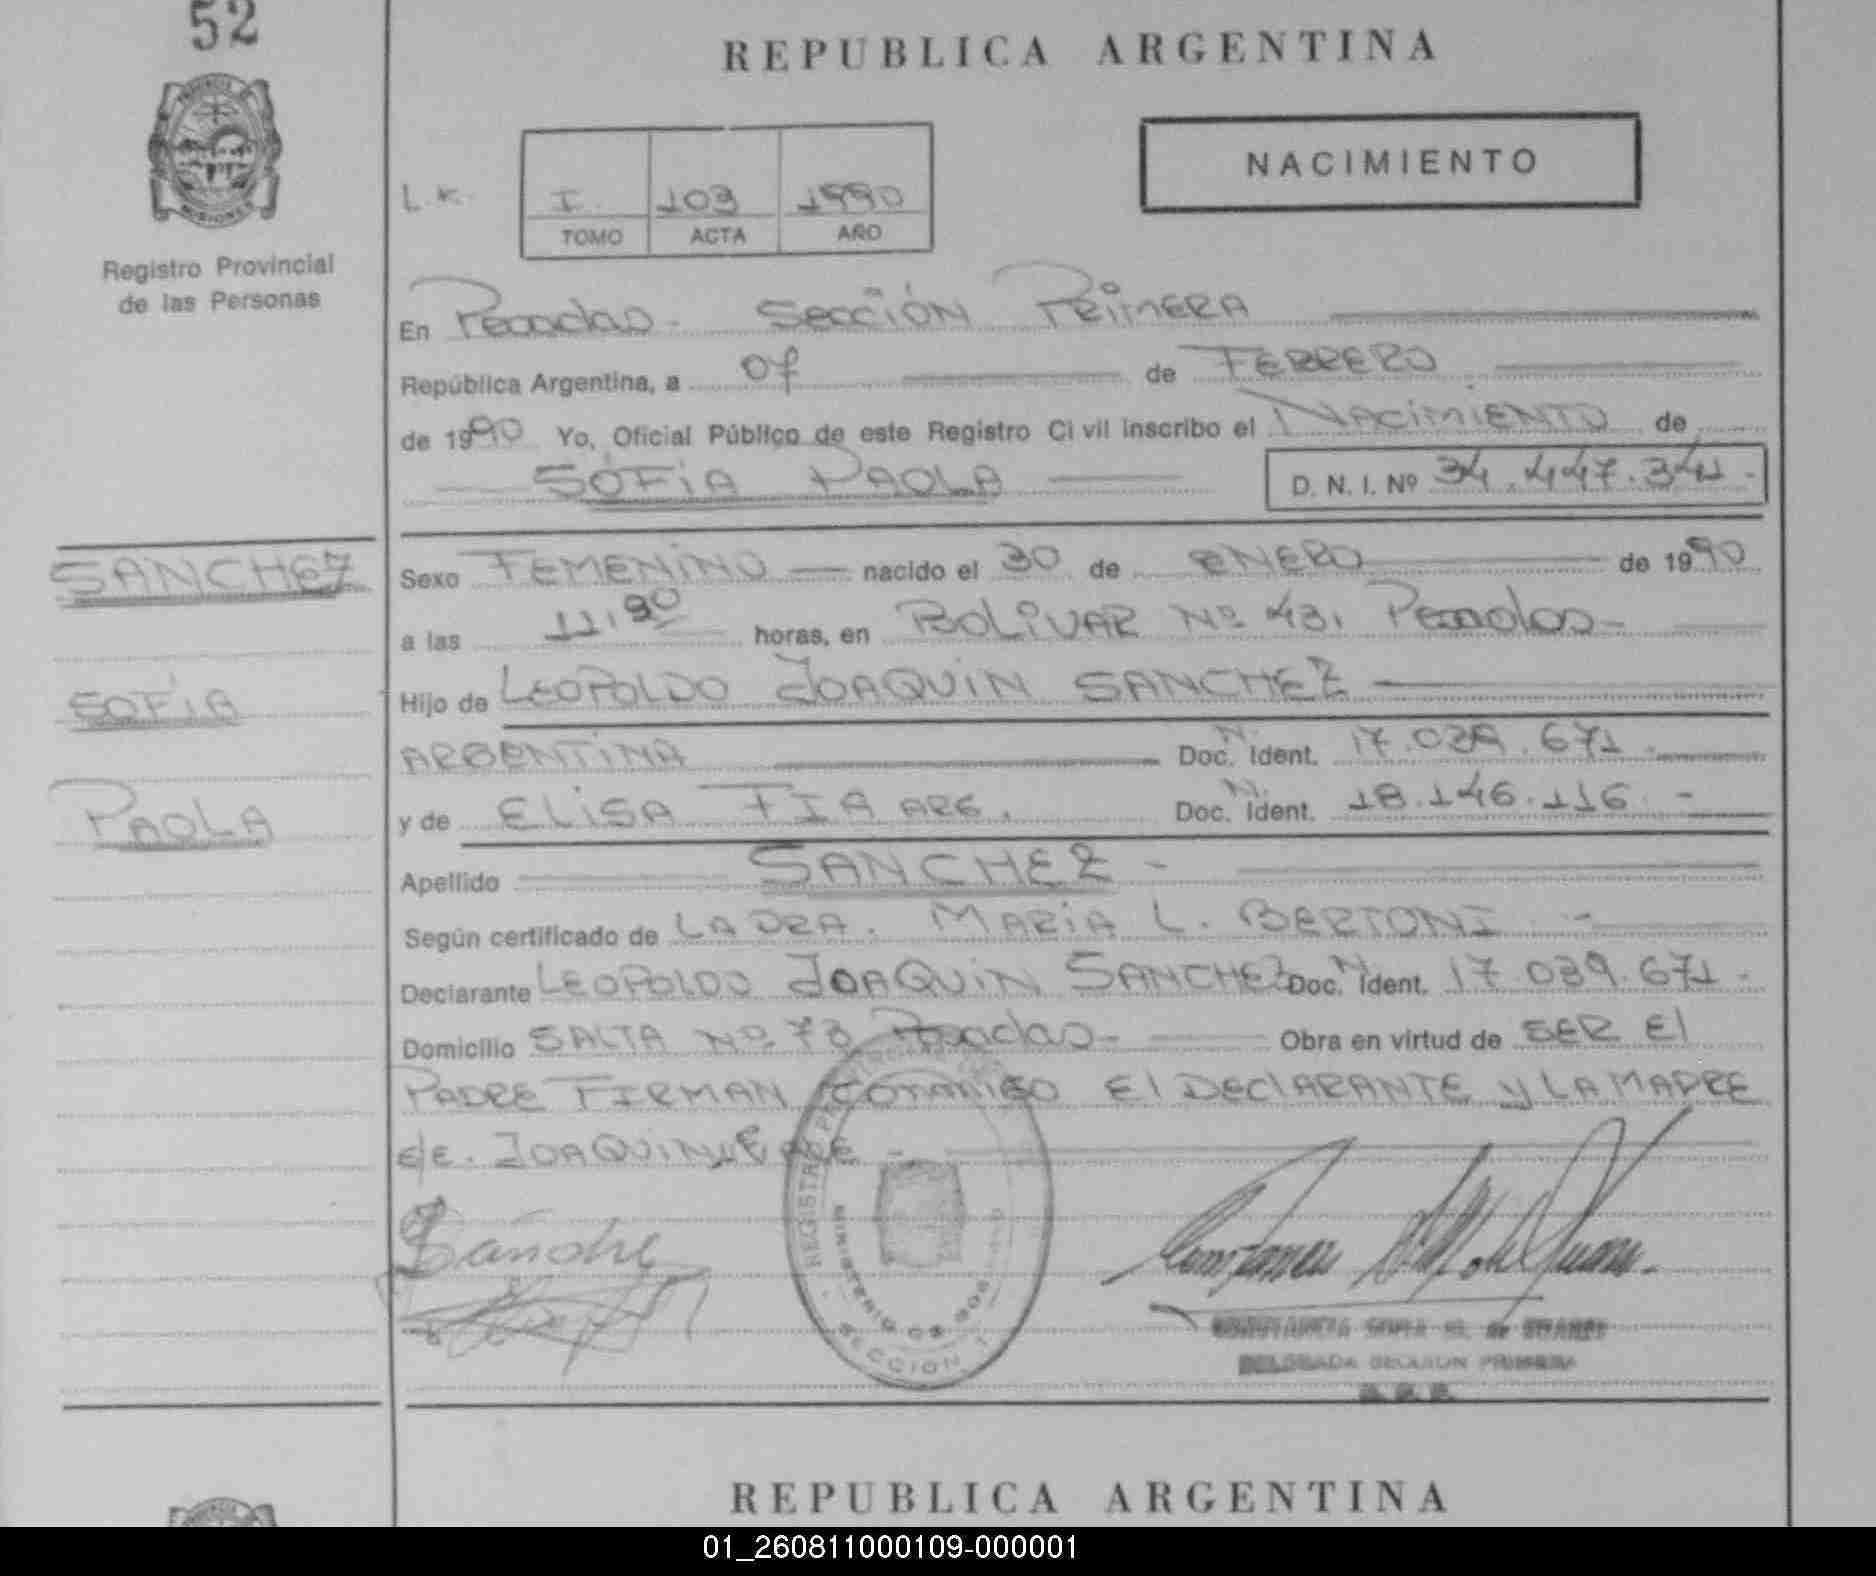 52
REPUBLICA ARGENTINA
NACIMIENTO
L.K. I. 103 1990
TOMO ACTA AÑO
Registro Provincial
de las Personas
En Posadas - Sección Primera
República Argentina, a 07 de FEBRERO
de 1990 Yo, Oficial Público de este Registro Civil inscribo el NACIMIENTO de
SOFIA PAOLA D. N. I. Nº 34.447.341-
SANCHEZ
SOFIA
PAOLA
Sexo FEMENINO nacido el 30 de ENERO de 1990
a las 11, horas, en BOLIVAR Nº 43, Posadas-
Hijo de LEOPOLDO JOAQUIN SANCHEZ
ARGENTINA Doc. N. Ident. 17.039.671.
y de ELISA FIA ARG. Doc. N. Ident. 18.146.116.-
Apellido SANCHEZ -
Según certificado de LA DRA. MARIA L. BERTONI -
Declarante LEOPOLDO JOAQUIN SANCHEZ Doc. N. Ident. 17.039.671-
Domicilio SALTA Nº 73 Posadas- Obra en virtud de SER El
PADRE FIRMAN conmigo El DEClARANTE y LA MADRE
e/e. JOAQUIN
REGISTRO
MINISTERIO DE GOB
SECCION 1
DELEGADA SECCION PRIMERA
REPUBLICA ARGENTINA
01_260811000109-000001